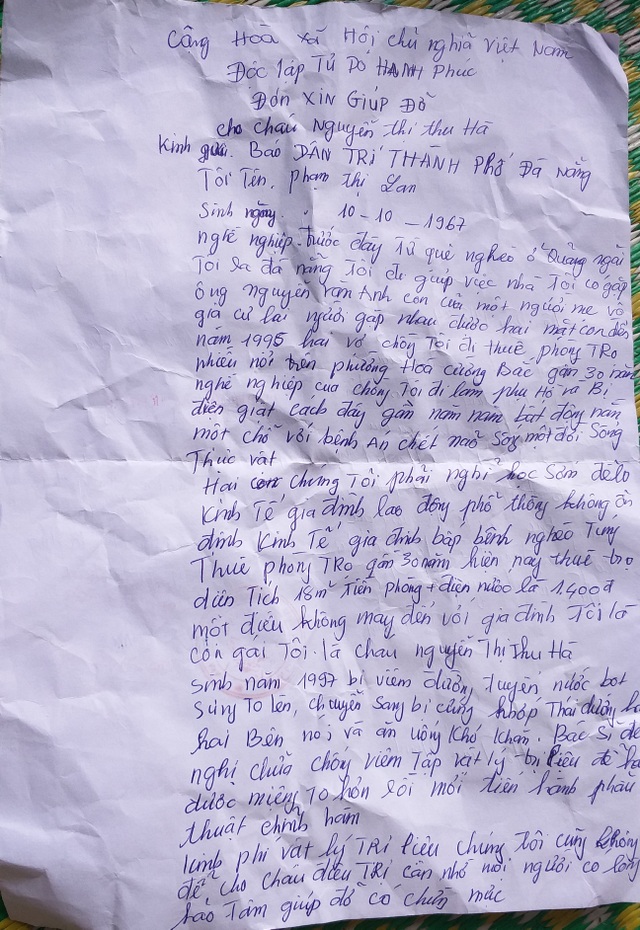 Cộng Hoà xã Hội chủ nghĩa việt Nam
Độc lập Tự Do HẠNH Phúc
Đơn XIN Giúp Đỡ
cho cháu Nguyễn thị thu Hà
Kính gửi. Báo DÂN TRÍ THÀNH PHỐ Đà Nẵng
Tôi Tên, phạm Thị Lan
Sinh ngày. 10-10-1967
nghề nghiệp. trước đây Từ quê nghèo ở Quảng ngãi
Tôi ra đà nẵng Tôi đi giúp việc nhà Tôi có gặp
ông nguyễn văn Anh con của một người mẹ vô
gia cư hai người gặp nhau được hai mặt con đến
năm 1995 hai vợ chồng Tôi đi thuê phòng TRọ
nhiều nơi trên phường Hoà cường Bắc gần 30 năm
nghề nghiệp của chồng Tôi đi làm phụ Hồ và Bị
điện giật cách đây gần năm năm bất động nằm
một chỗ với bệnh Án chết não Sống một đời Sống
Thực vật
Hai con chúng Tôi phải nghỉ học Sớm để lo
Kinh Tế gia đình lao động phổ thông không ổn
định Kinh Tế gia đình bập bênh nghèo Túng
Thuê phòng TRọ gần 30 năm hiện nay thuê trọ
diện Tích 18m² Tiền phòng + điện nước là 1.400đ
một điều không may đến với gia đình Tôi là
con gái Tôi là cháu nguyễn Thị Thu Hà
Sinh năm 1997 bị viêm đường tuyến nước bọt
Sưng To lên, chuyển Sang bị cứng khớp Thái dương
hai Bên nói và ăn uống Khó Khăn. Bác Sĩ đề
nghị chữa chống viêm Tập vật lý trị liệu để há
được miệng To hơn rồi mới tiến hành phẩu
thuật chỉnh hàm
kinh phí vật lý TRị liệu chúng Tôi cũng không
để cho cháu điều TRị cần nhờ mọi người có lòng
hảo Tâm giúp đỡ có chừng mực